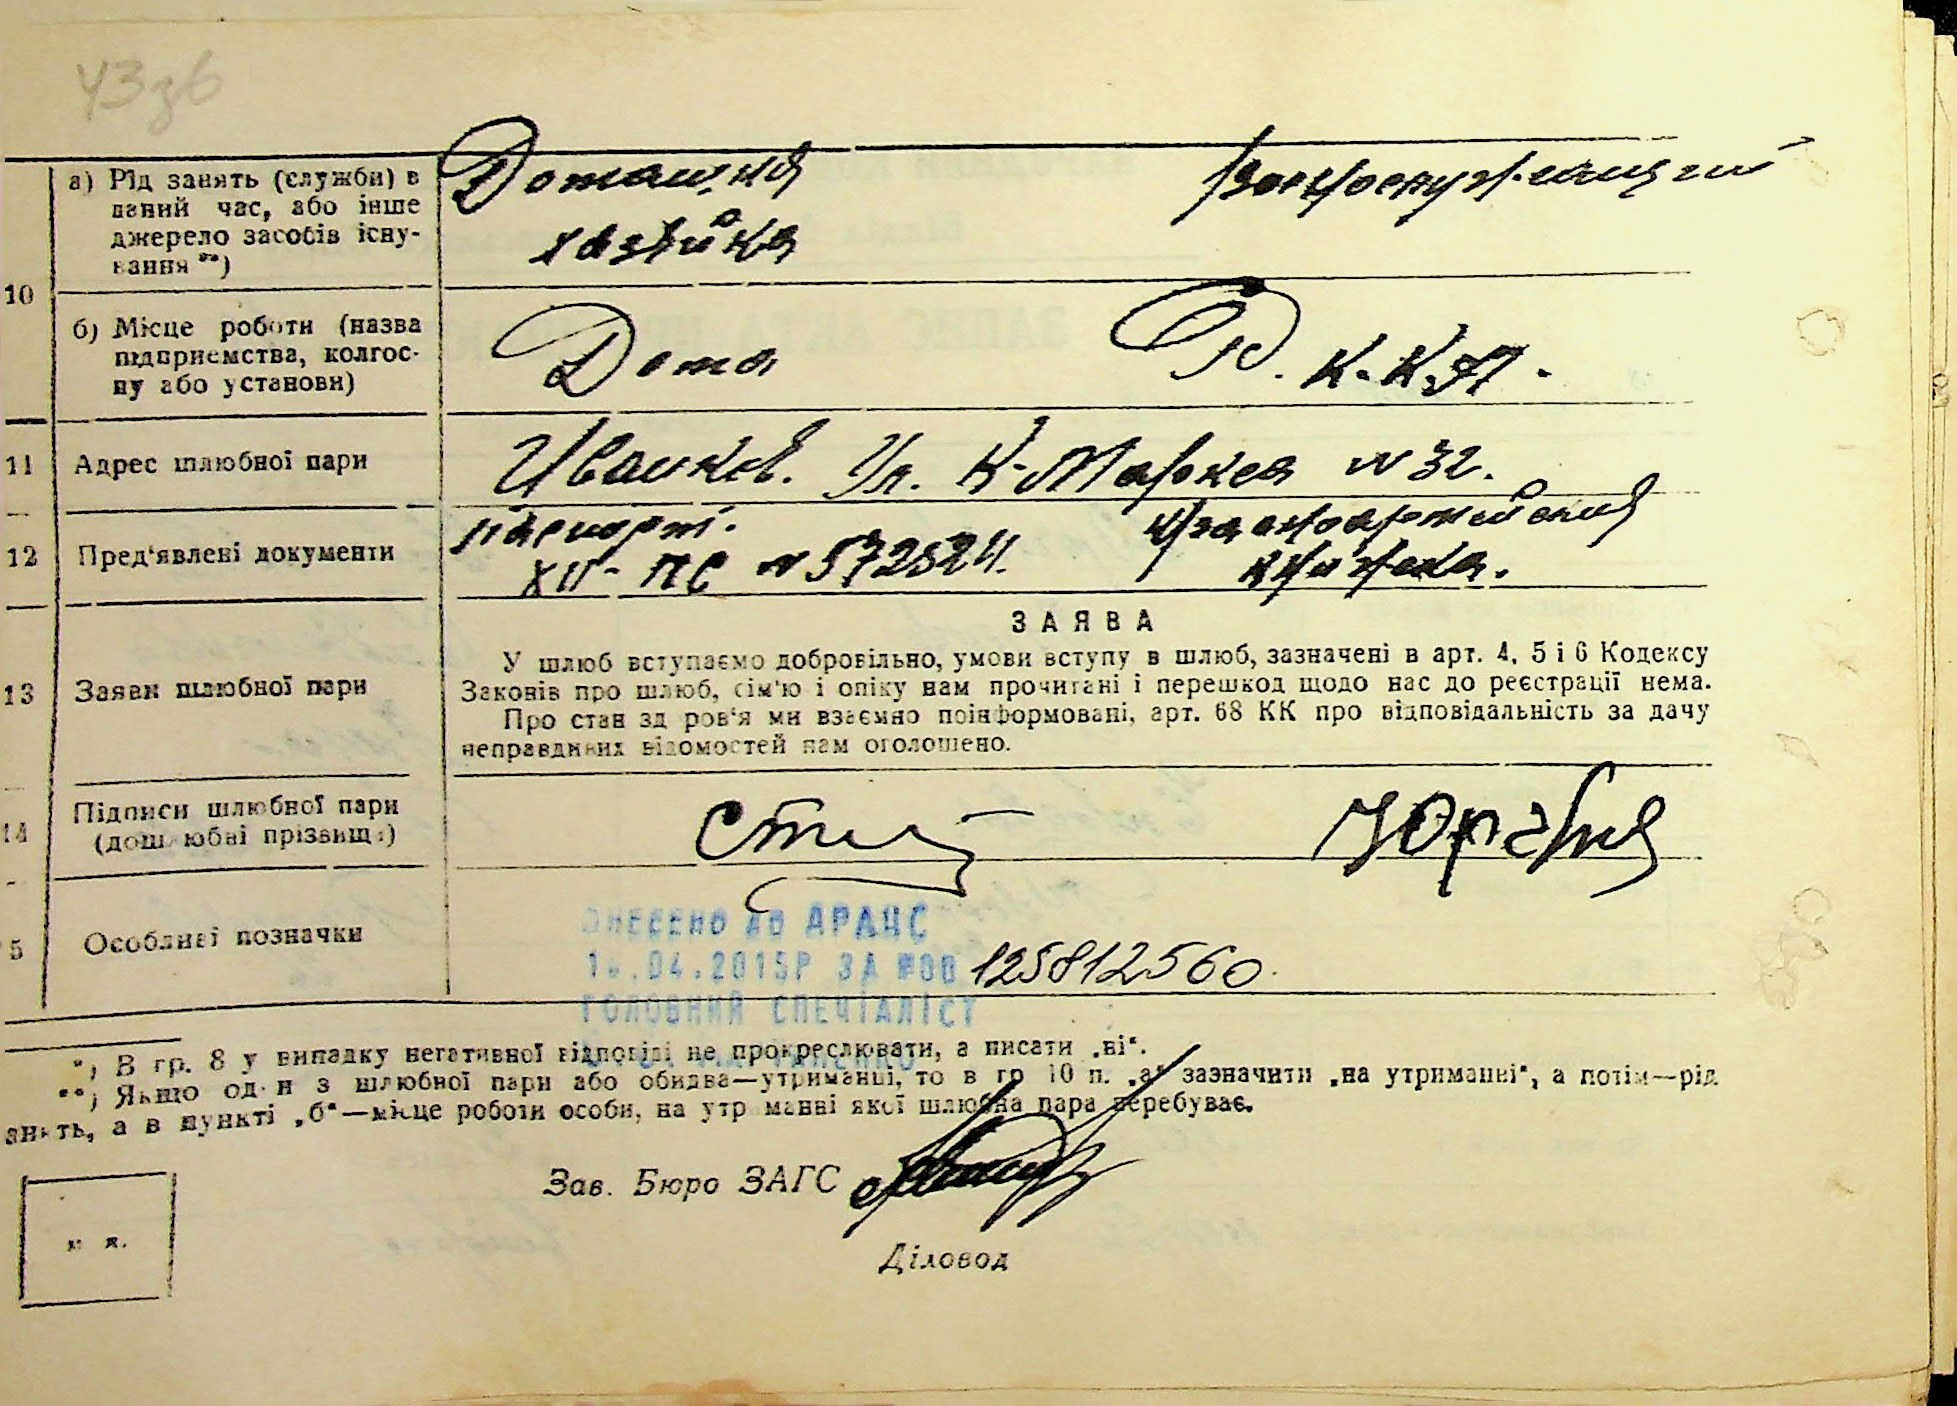 43зв
10
а) Рід занять (служби) в
даний час, або інше
джерело засобів існу-
вання **)
Домашняя
хазяйка
Военнослужащий
б) Місце роботи (назва
підприємства, колгос-
пу або установи)
Дома
Р.К.К.А.
11
Адрес шлюбної пари
Иванков. Ул. К-Маркса № 32.
12
Пред'явлені документи
паспорт.
XII-ПС № 572524.
Красноармейская
книжка.
13
Заяви шлюбної пари
ЗАЯВА
У шлюб вступаємо добровільно, умови вступу в шлюб, зазначені в арт. 4, 5 і 6 Кодексу
Законів про шлюб, сім'ю і опіку нам прочитані і перешкод щодо нас до реєстрації нема.
Про стан здоров'я ми взаємно поінформовані, арт. 68 КК про відповідальність за дачу
неправдивих відомостей нам оголошено.
14
Підписи шлюбної пари
(дошлюбні прізвища)
5
Особливі позначки
ВНЕСЕНО ДО АРАЦС
.04.2015Р ЗА №00 125812560.
ГОЛОВНИЙ СПЕЦІАЛІСТ
*) В гр. 8 у випадку негативної відповіді не прокреслювати, а писати „ні“.
**) Якщо один з шлюбної пари або обидва—утриманці, то в гр 10 п. „а“ зазначити „на утриманні“, а потім—рід
знять, а в пункті „б“—місце роботи особи, на утриманні якої шлюбна пара перебуває.
Зав. Бюро ЗАГС
Діловод
м п.